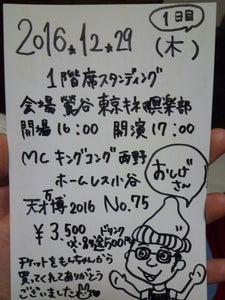 1日目
2016.12.29
(木)
1階席スタンディング
会場 鶯谷 東京キネマ倶楽部
開場 16:00 開演 17:00
MC キングコング西野
ホームレス小谷
おしげさん
天才万博2016 No.75
¥3,500
ドリンク代別途500円
チケットをもんちゃんから
買ってくれてありがとう
ございました